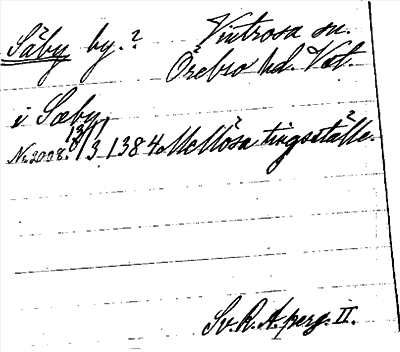 Såby by.? Vintrosa sn.
Örebro hd. Vstm.
i Sæby
Nr. 2008. 13/3 1384 Mellösa tingsställe.
Sv. R. A. perg. II.